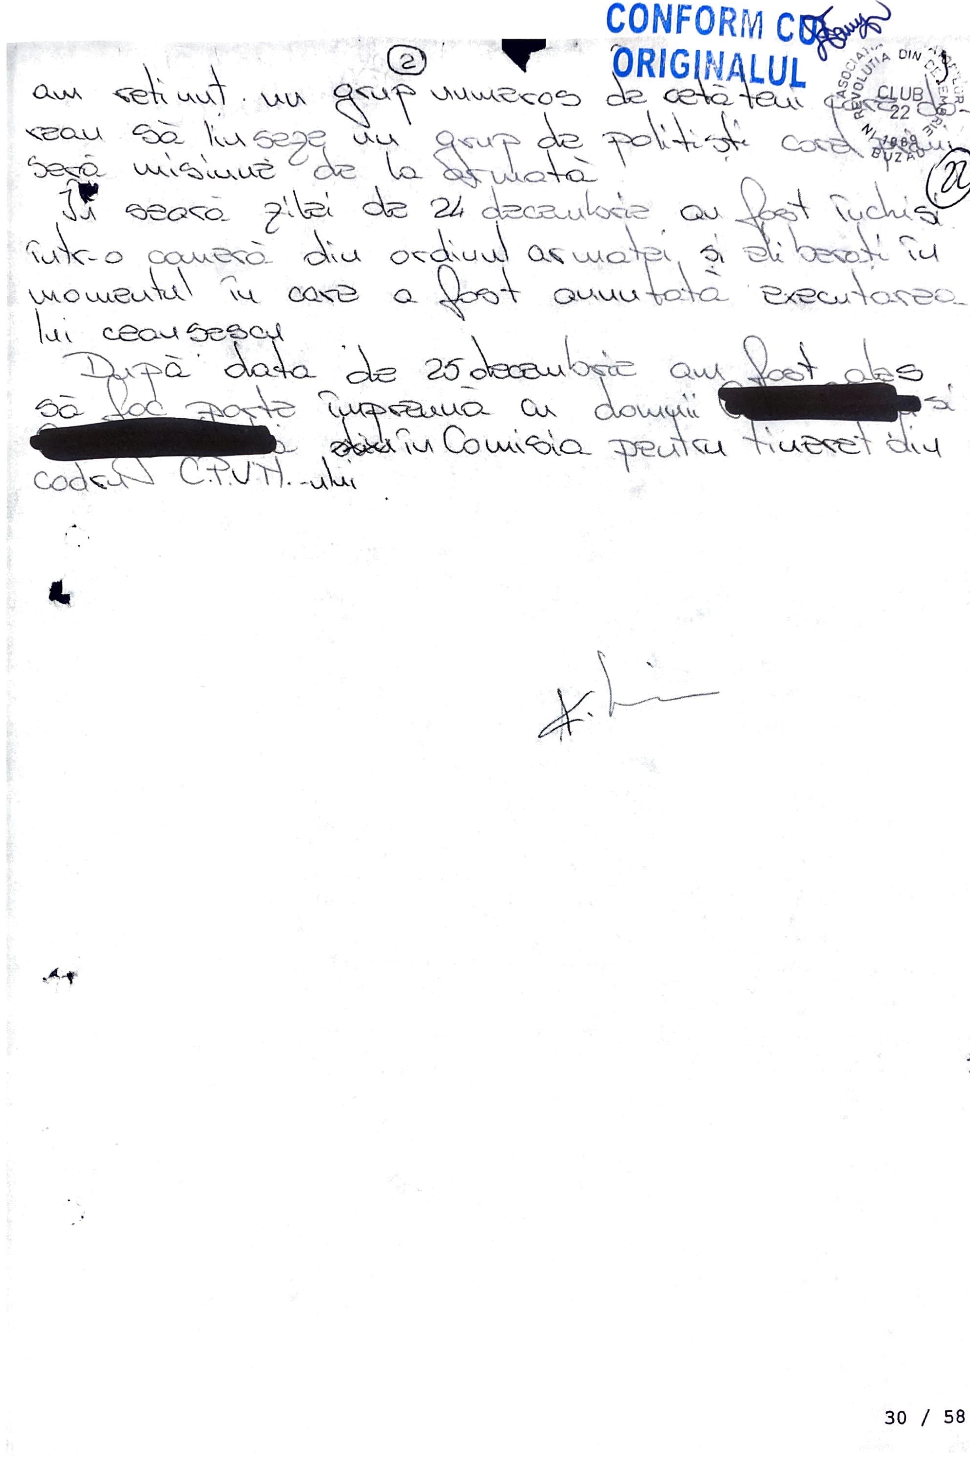 CONFORM CU
ORIGINALUL
ASOCIAȚIA
REVOLUȚIA DIN DECEMBRIE
CLUB
22
1989
BUZĂU
2
am retinut un grup numeros de cetăteni care do-
reau să linseze un grup de politisti care
seră misiune de la armată
22
În seară zilei de 24 decembrie au fost închisi
într-o cameră din ordinul armatei si eliberati în
momentul în care a fost anuntată executarea
lui ceausescu
După data de 25 decembrie am fost ales
să fac parte împreună cu domnii si
în Comisia pentru tineret din
cadrul C.P.U.N.-ului
30 / 58